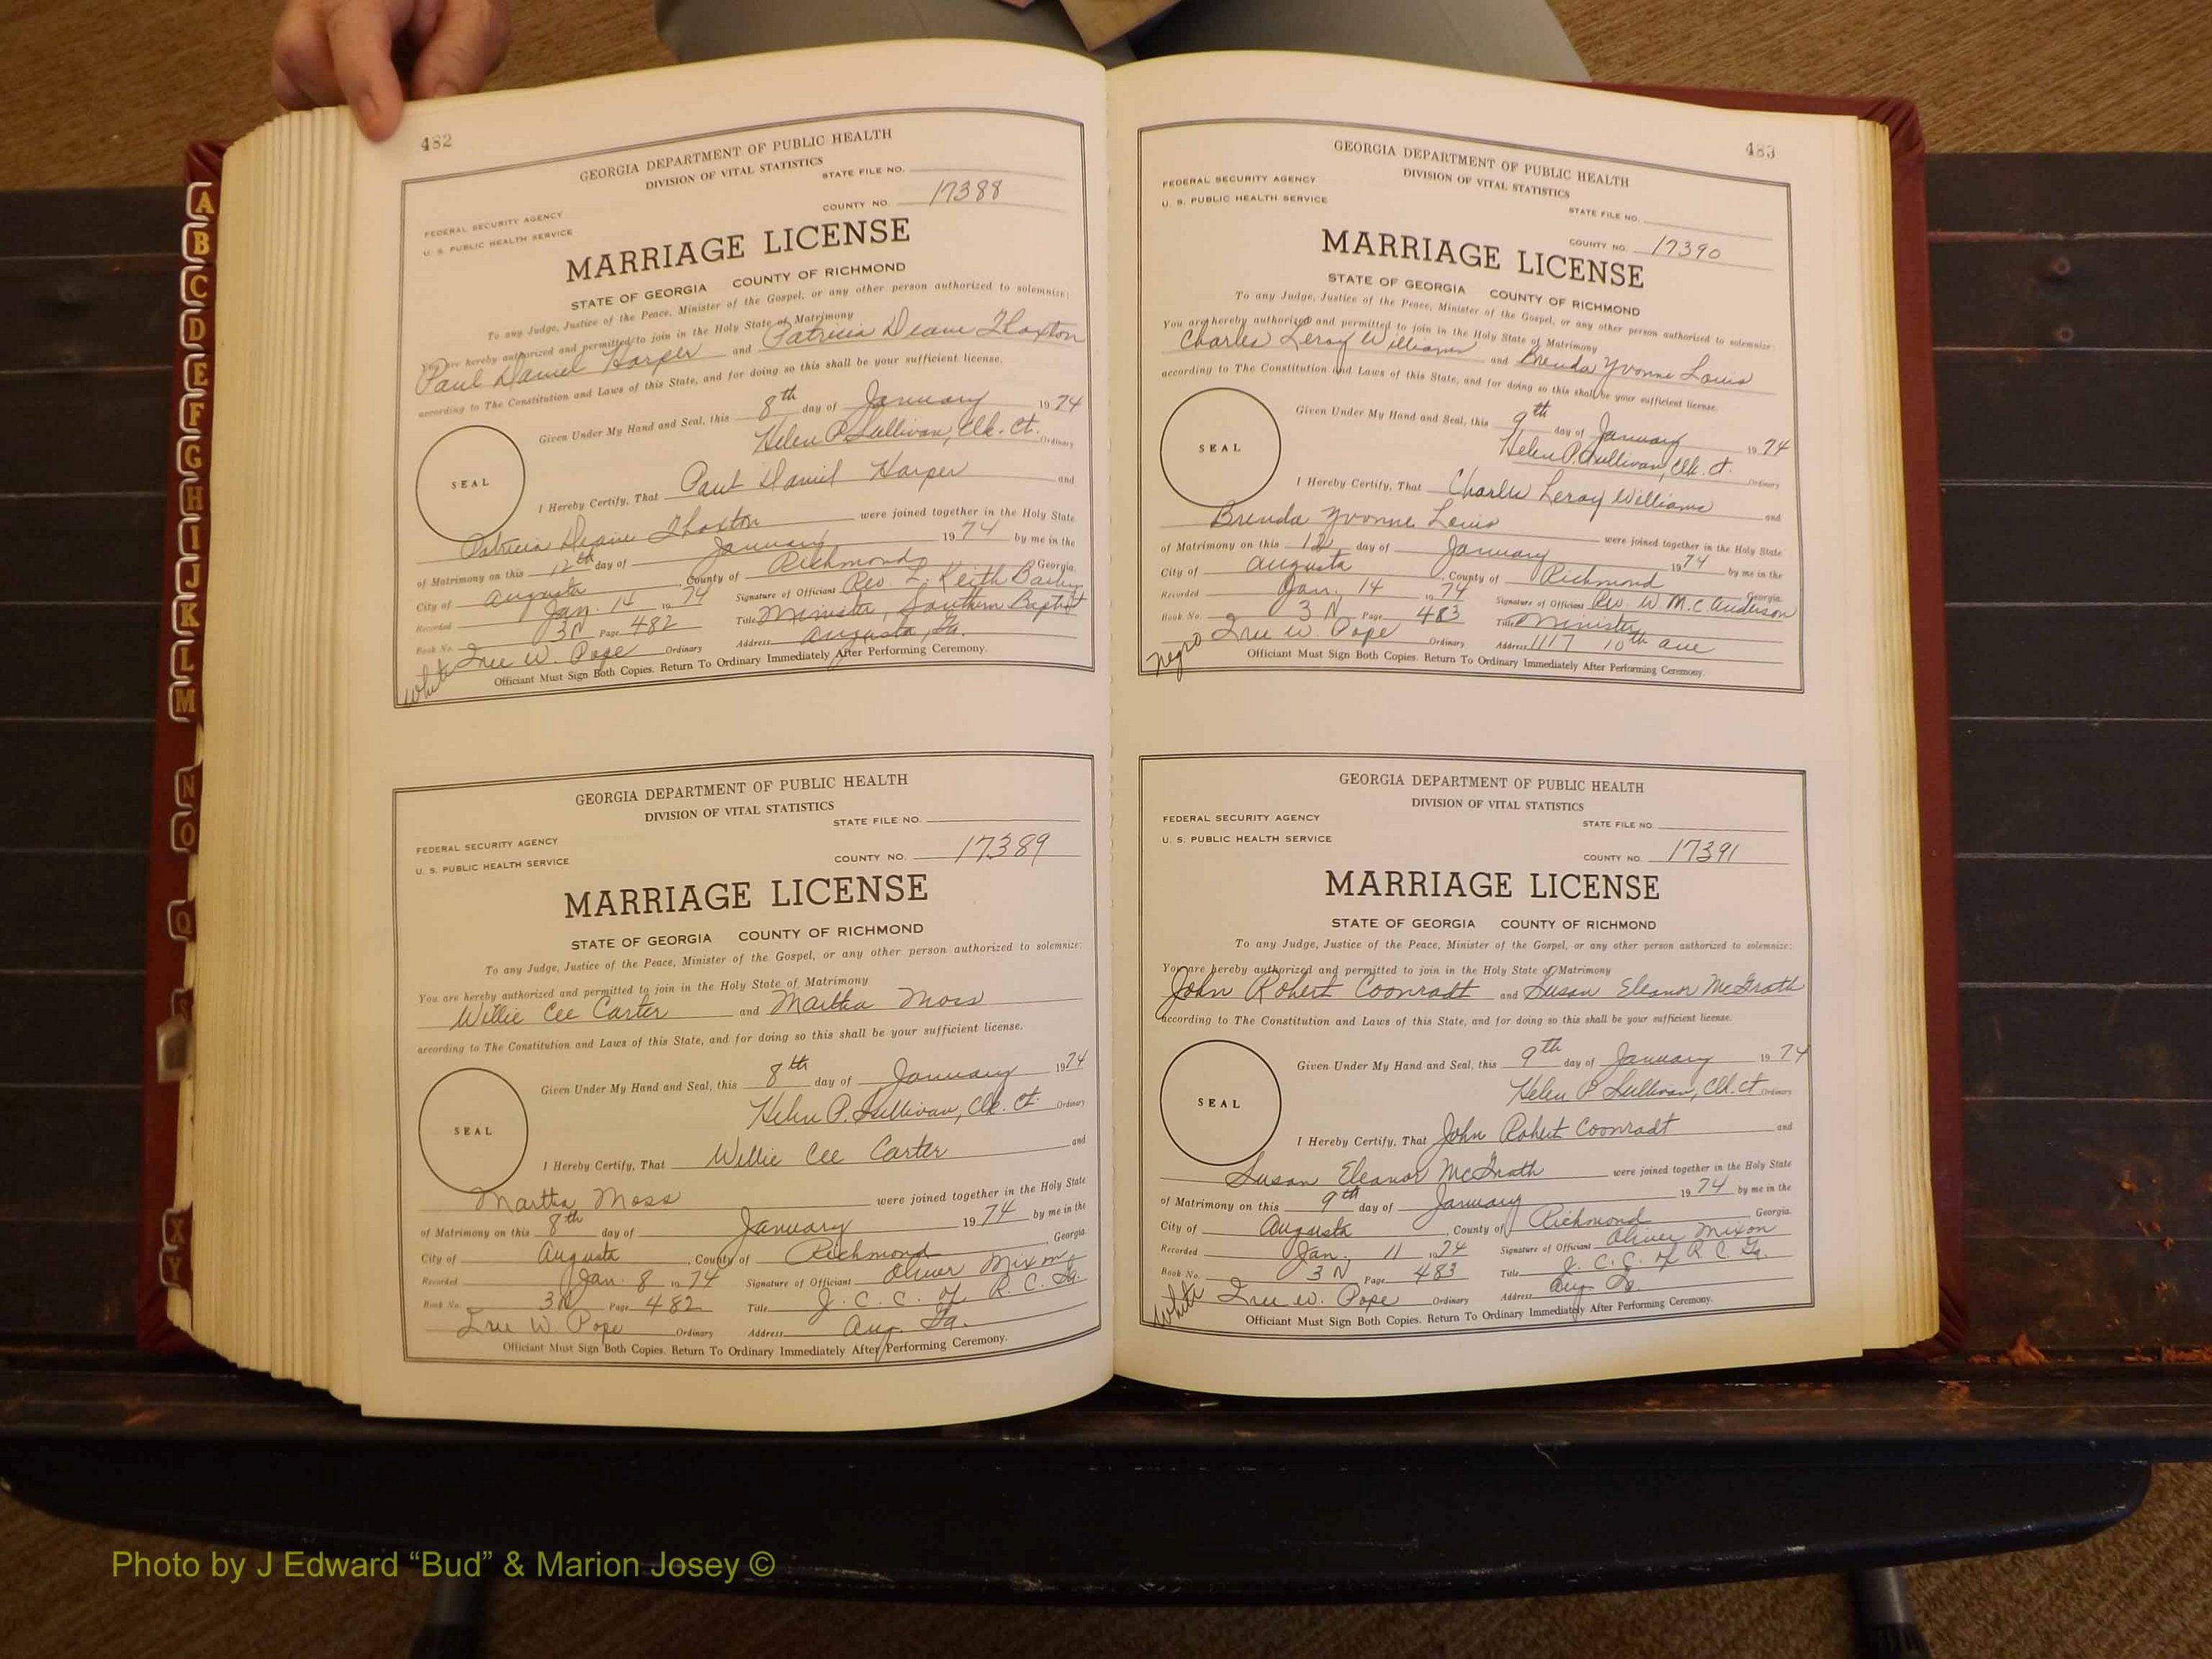 A
B
C
D
E
F
G
H
I
J
K
L
M
N
O
Q
S
X
Y
482
GEORGIA DEPARTMENT OF PUBLIC HEALTH
DIVISION OF VITAL STATISTICS
STATE FILE NO.
FEDERAL SECURITY AGENCY
U. S. PUBLIC HEALTH SERVICE
COUNTY NO. 17388
MARRIAGE LICENSE
STATE OF GEORGIA COUNTY OF RICHMOND
To any Judge, Justice of the Peace, Minister of the Gospel, or any other person authorized to solemnize:
You are hereby authorized and permitted to join in the Holy State of Matrimony
Paul Daniel Harper and Patricia Deane Thaxton
according to The Constitution and Laws of this State, and for doing so this shall be your sufficient license.
Given Under My Hand and Seal, this 8th day of January 1974
Helen P. Sullivan, Clk. Ct. Ordinary
SEAL
I Hereby Certify, That Paul Daniel Harper and
Patricia Deane Thaxton were joined together in the Holy State
of Matrimony on this 12th day of January 1974 by me in the
City of Augusta, County of Richmond, Georgia.
Recorded Jan. 14 1974 Signature of Officiant Rev. L. Keith
Book No. 3N Page 482 Title Minister, Southern Baptist
Irue W. Pope Ordinary Address Augusta, Ga.
White
Officiant Must Sign Both Copies. Return To Ordinary Immediately After Performing Ceremony.
GEORGIA DEPARTMENT OF PUBLIC HEALTH
DIVISION OF VITAL STATISTICS
STATE FILE NO.
FEDERAL SECURITY AGENCY
U. S. PUBLIC HEALTH SERVICE
COUNTY NO. 17389
MARRIAGE LICENSE
STATE OF GEORGIA COUNTY OF RICHMOND
To any Judge, Justice of the Peace, Minister of the Gospel, or any other person authorized to solemnize:
You are hereby authorized and permitted to join in the Holy State of Matrimony
Willie Cee Carter and Martha Moss
according to The Constitution and Laws of this State, and for doing so this shall be your sufficient license.
Given Under My Hand and Seal, this 8th day of January 1974
Helen P. Sullivan, Clk. Ct. Ordinary
SEAL
I Hereby Certify, That Willie Cee Carter and
Martha Moss were joined together in the Holy State
of Matrimony on this 8th day of January 1974 by me in the
City of Augusta, County of Richmond, Georgia.
Recorded Jan. 8 1974 Signature of Officiant Oliver Mixon
Book No. 3N Page 482 Title J. C. C. of R. C. Ga.
Irue W. Pope Ordinary Address Aug. Ga.
Officiant Must Sign Both Copies. Return To Ordinary Immediately After Performing Ceremony.
483
GEORGIA DEPARTMENT OF PUBLIC HEALTH
DIVISION OF VITAL STATISTICS
FEDERAL SECURITY AGENCY
U. S. PUBLIC HEALTH SERVICE
STATE FILE NO.
COUNTY NO. 17390
MARRIAGE LICENSE
STATE OF GEORGIA COUNTY OF RICHMOND
To any Judge, Justice of the Peace, Minister of the Gospel, or any other person authorized to solemnize:
You are hereby authorized and permitted to join in the Holy State of Matrimony
Charles Leroy Williams and Brenda Yvonne Louis
according to The Constitution and Laws of this State, and for doing so this shall be your sufficient license.
Given Under My Hand and Seal, this 9th day of January 1974
Helen P. Sullivan, Clk. Ct. Ordinary
SEAL
I Hereby Certify, That Charles Leroy Williams and
Brenda Yvonne Louis were joined together in the Holy State
of Matrimony on this 12 day of January 1974 by me in the
City of Augusta, County of Richmond Georgia.
Recorded Jan. 14 1974 Signature of Officiant Rev. W. M. C. Anderson
Book No. 3N Page 483 Title Minister
Irue W. Pope Ordinary Address 1117 10th ave
Negro
Officiant Must Sign Both Copies. Return To Ordinary Immediately After Performing Ceremony.
GEORGIA DEPARTMENT OF PUBLIC HEALTH
DIVISION OF VITAL STATISTICS
FEDERAL SECURITY AGENCY
STATE FILE NO.
U. S. PUBLIC HEALTH SERVICE
COUNTY NO. 17391
MARRIAGE LICENSE
STATE OF GEORGIA COUNTY OF RICHMOND
To any Judge, Justice of the Peace, Minister of the Gospel, or any other person authorized to solemnize:
You are hereby authorized and permitted to join in the Holy State of Matrimony
John Robert Coonradt and Susan Eleanor McGrath
according to The Constitution and Laws of this State, and for doing so this shall be your sufficient license.
Given Under My Hand and Seal, this 9th day of January 1974
Helen P. Sullivan, Clk. Ct Ordinary
SEAL
I Hereby Certify, That John Robert Coonradt and
Susan Eleanor McGrath were joined together in the Holy State
of Matrimony on this 9th day of January 1974 by me in the
City of Augusta, County of Richmond Georgia.
Recorded Jan. 11 1974 Signature of Officiant Oliver Mixon
Book No. 3N Page 483 Title J. C. C. of R. C. Ga.
Irue W. Pope Ordinary Address Aug. Ga.
White
Officiant Must Sign Both Copies. Return To Ordinary Immediately After Performing Ceremony.
Photo by J Edward “Bud” & Marion Josey ©